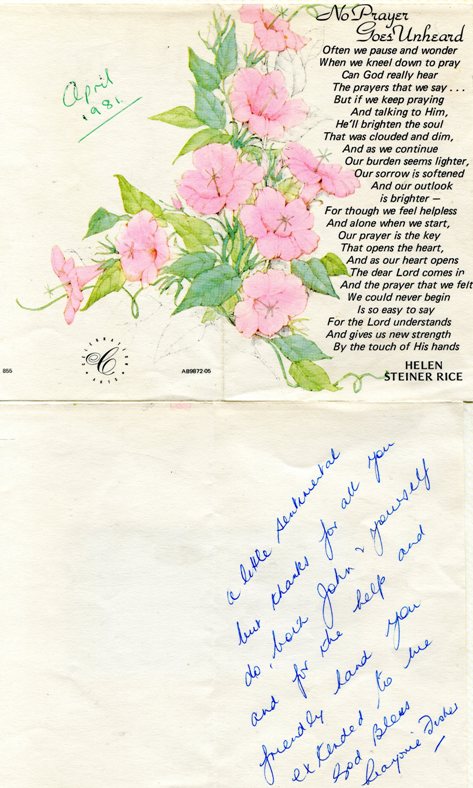 April
1981.
No Prayer
Goes Unheard
Often we pause and wonder
When we kneel down to pray
Can God really hear
The prayers that we say . . .
But if we keep praying
And talking to Him,
He'll brighten the soul
That was clouded and dim,
And as we continue
Our burden seems lighter,
Our sorrow is softened
And our outlook
is brighter —
For though we feel helpless
And alone when we start,
Our prayer is the key
That opens the heart,
And as our heart opens
The dear Lord comes in
And the prayer that we felt
We could never begin
Is so easy to say
For the Lord understands
And gives us new strength
By the touch of His hands
HELEN
STEINER RICE
855
CELEBRATION ARTS
C
A89872-05
a little sentimental
but thanks for all you
do, both John & yourself
and for the help and
friendly hand you
extended to me
God Bless
Marjorie Fisher